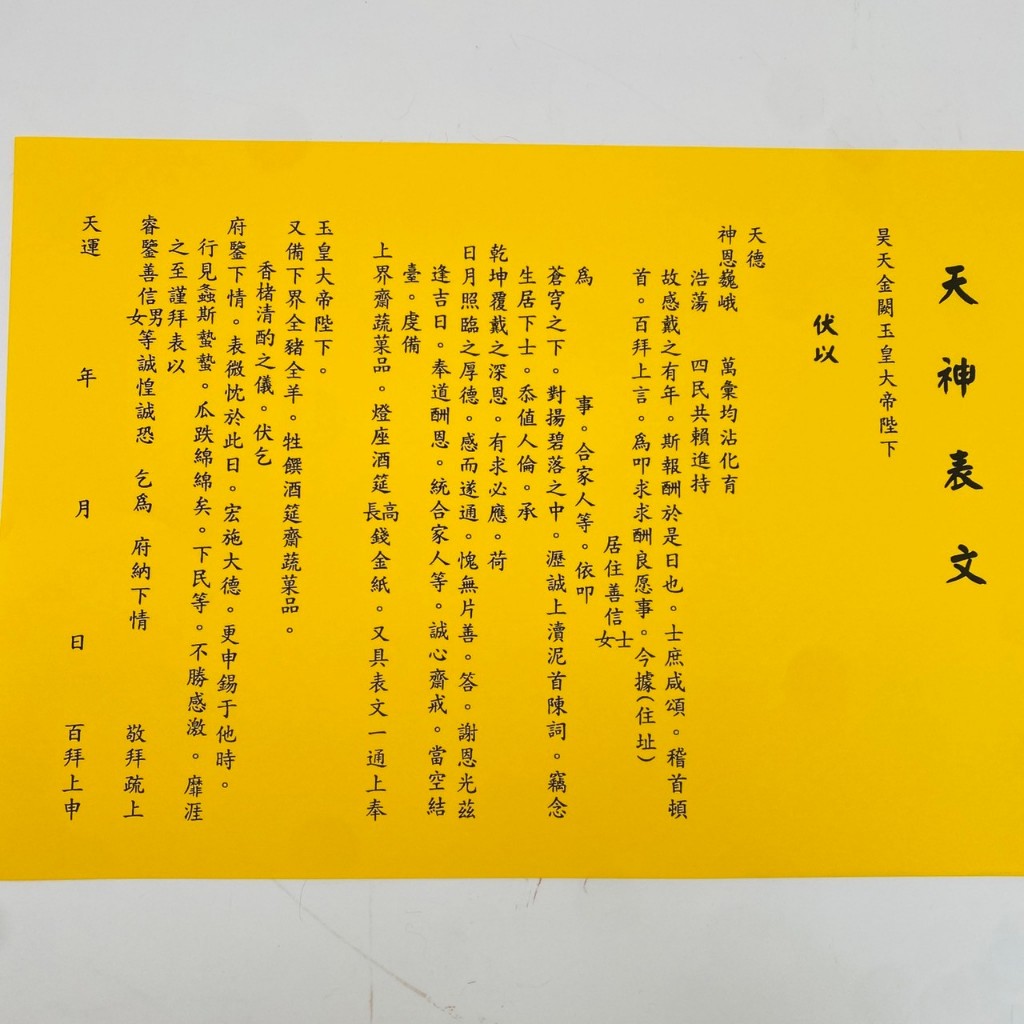 天神表文
昊天金闕玉皇大帝陛下
伏以
天德
神恩巍峨　萬彙均沾化育
浩蕩　四民共賴進持
故感戴之有年。斯報酬於是日也。士庶咸頌。稽首頓
首。百拜上言。為叩求求酬良愿事。今據（住址）
居住善信士女
為　事。合家人等。依叩
蒼穹之下。對揚碧落之中。瀝誠上瀆泥首陳詞。竊念
生居下士。忝值人倫。承
乾坤覆戴之深恩。有求必應。荷
日月照臨之厚德。感而遂通。愧無片善。答。謝恩光茲
逢吉日。奉道酬恩。統合家人等。誠心齋戒。當空結
臺。虔備
上界齋蔬菓品。燈座酒筵高長錢金紙。又具表文一通上奉
玉皇大帝陛下。
又備下界全豬全羊。牲饌酒筵齋蔬菓品。
香楮清酌之儀。伏乞
府鑒下情。表微忱於此日。宏施大德。更申錫于他時。
行見螽斯蟄蟄。瓜跌綿綿矣。下民等。不勝感激。靡涯
之至謹拜表以
睿鑒善信男女等誠惶誠恐　乞為　府納下情　敬拜疏上
天運　年　月　日　百拜上申